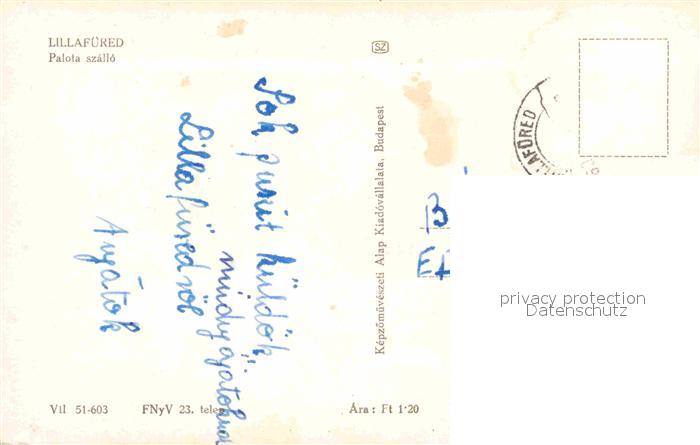 LILLAFÜRED
Palota szálló
SZ
LILLAFÜRED
Sok puszit küldök
mindnyájatoknak
Lillafüredről
Anyátok
Képzőművészeti Alap Kiadóvállalata, Budapest
B
privacy protection
Datenschutz
Vil 51-603 FNyV 23. telep Ára : Ft 1·20